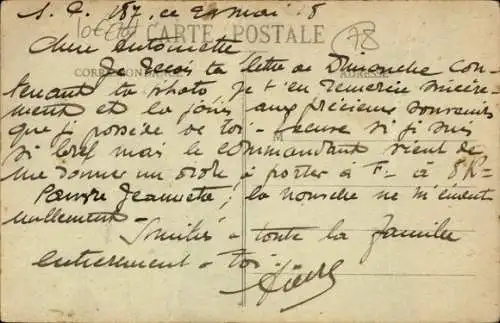 S. P. 187, ce 2 mai 18
CARTE POSTALE
78
Chère Antoinette
CORRESPONDANCE ADRESSE
Je reçois ta lettre de Dimanche con-
tenant ta photo je t'en remercie sincère-
ment et la joins aux précieux souvenirs
que je possède de toi - Excuse si je suis
si bref mais le commandant vient de
me donner un ordre à porter à F. - à 8 K -
Pauvre Jeannette, la nouvelle ne m'émeut
nullement -
Amitiés - toute la famille
entièrement - toi -